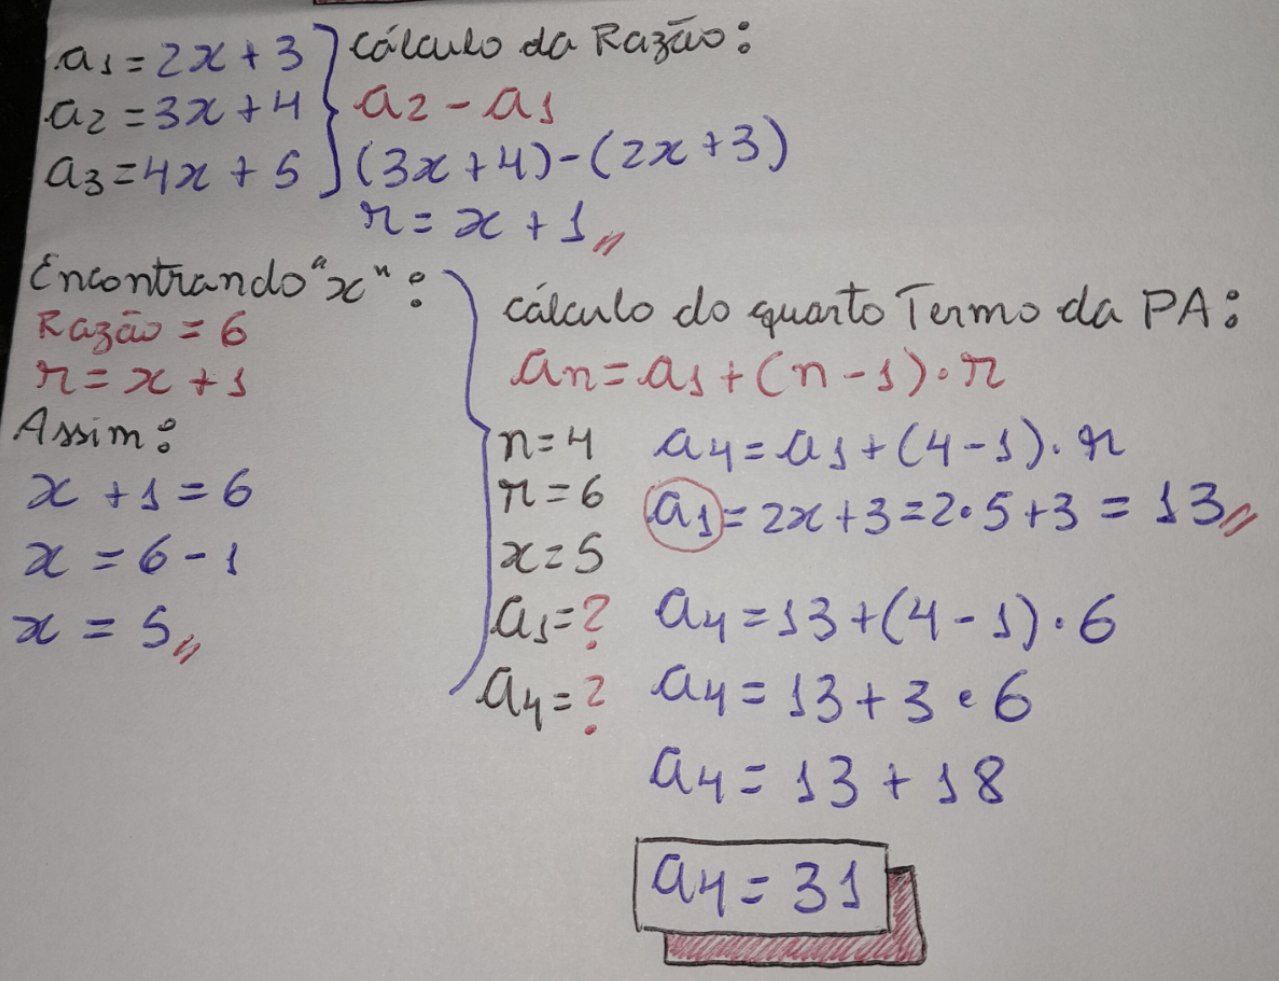 a1 = 2x + 3
a2 = 3x + 4
a3 = 4x + 5
Cálculo da Razão:
a2 - a1
(3x + 4) - (2x + 3)
r = x + 1
Encontrando "x":
Razão = 6
r = x + 1
Assim:
x + 1 = 6
x = 6 - 1
x = 5
cálculo do quarto Termo da PA:
an = a1 + (n - 1) · r
n = 4
r = 6
x = 5
a1 = ?
a4 = ?
a4 = a1 + (4 - 1) · r
a1 = 2x + 3 = 2 · 5 + 3 = 13
a4 = 13 + (4 - 1) · 6
a4 = 13 + 3 · 6
a4 = 13 + 18
a4 = 31